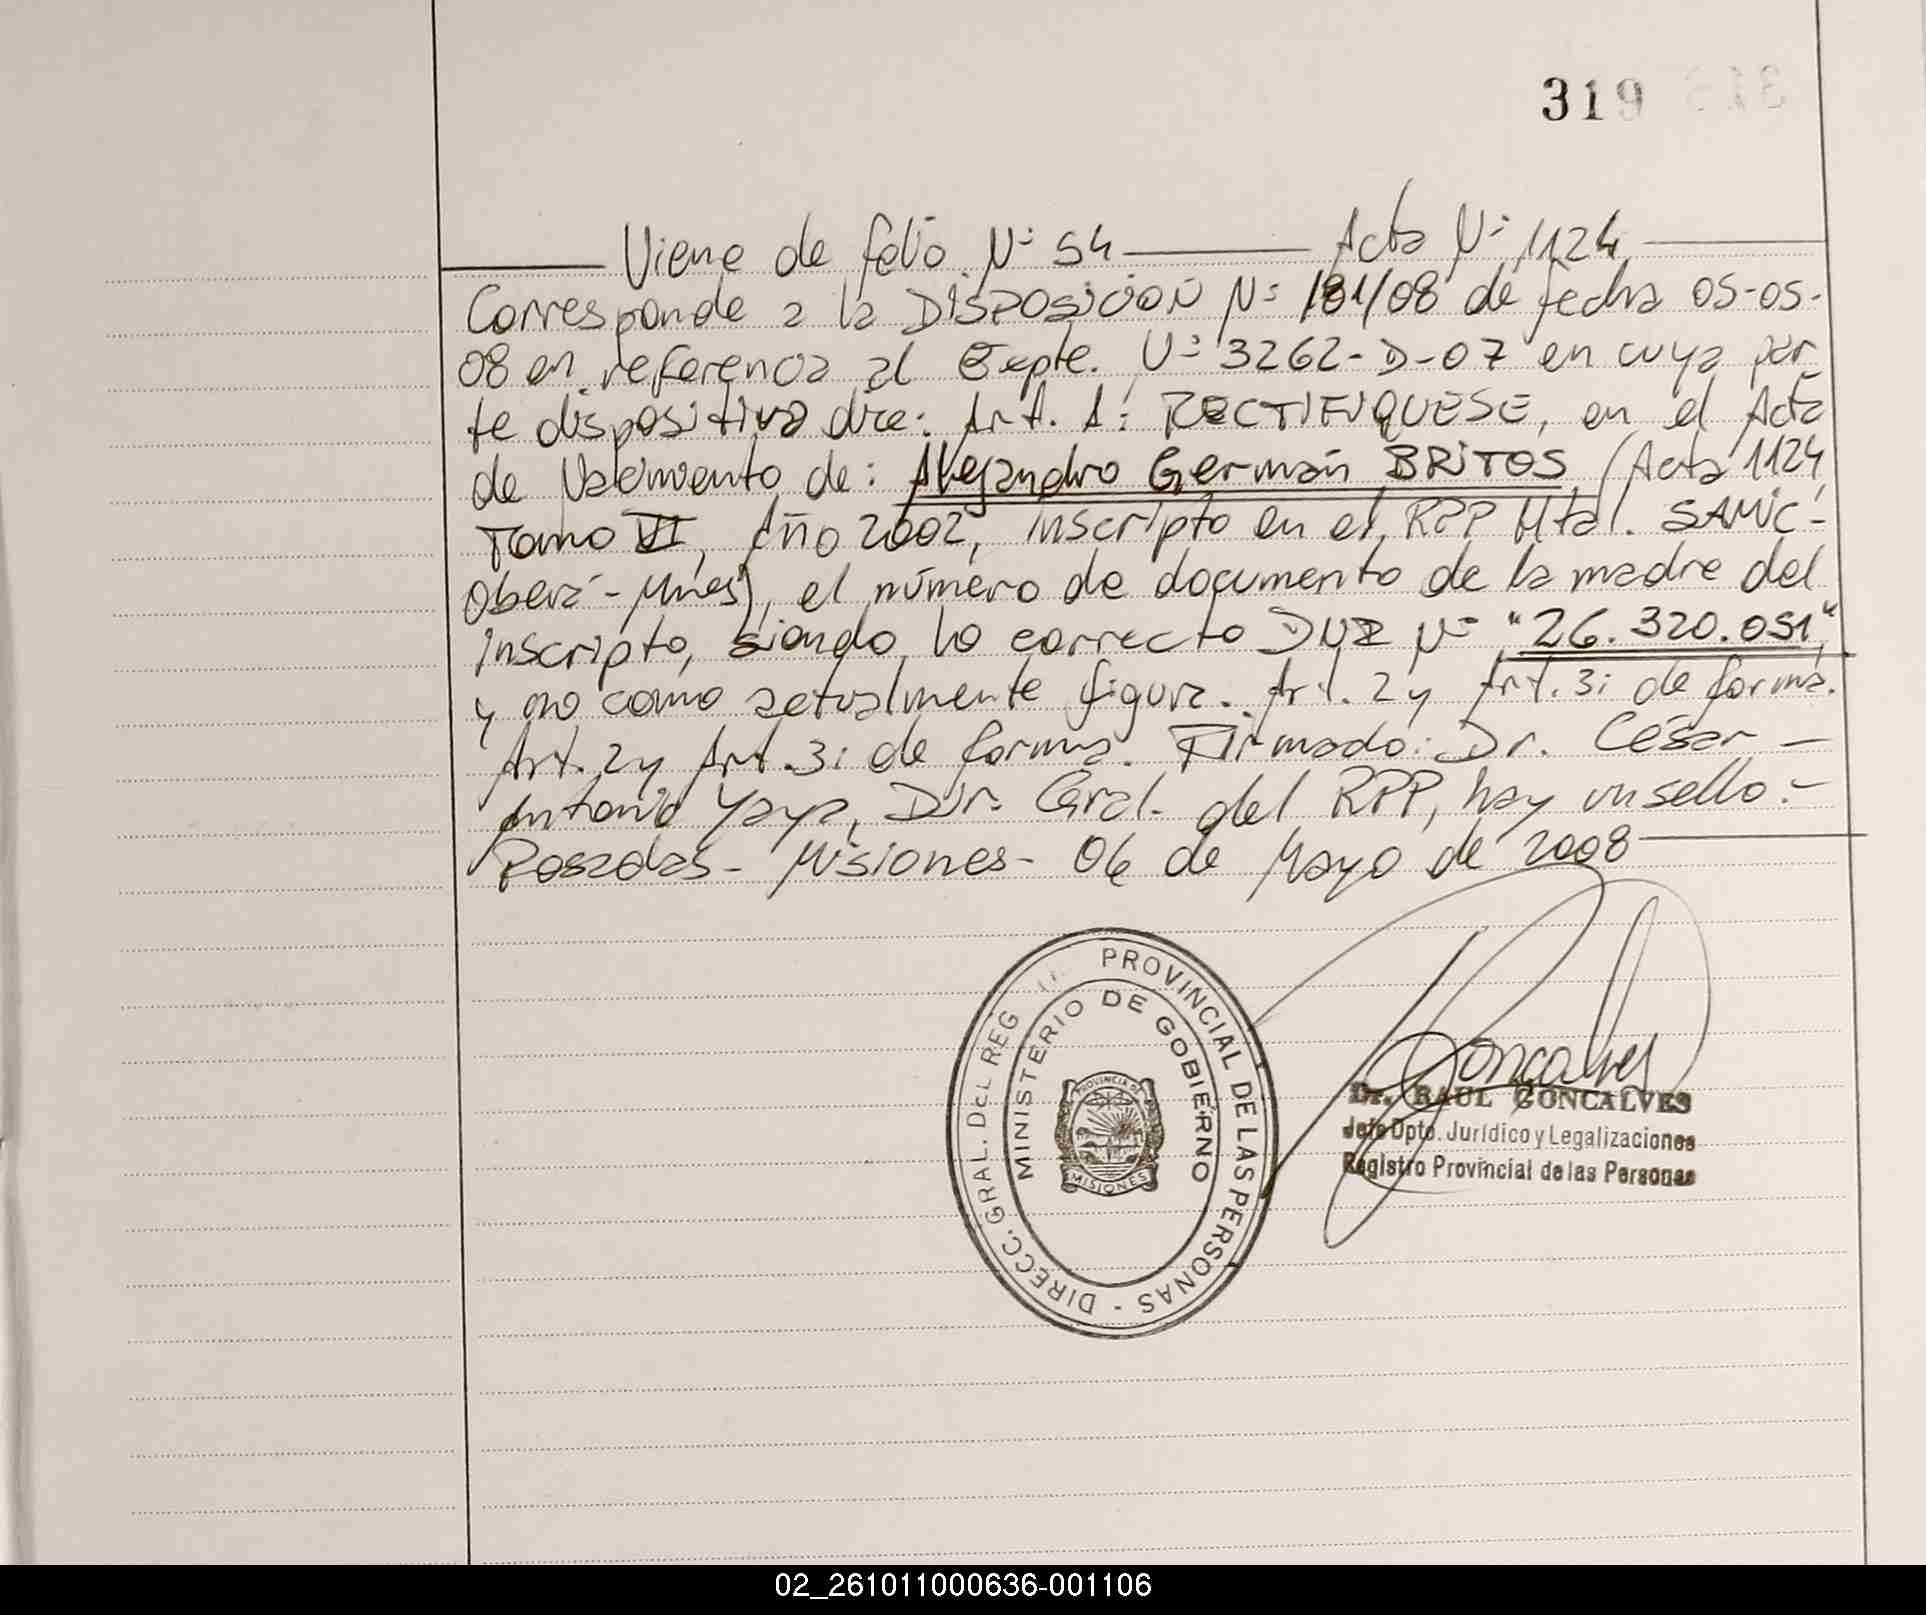 319
Viene de folio Nº 54 Acta Nº 1124
Corresponde a la DISPOSICION Nº 181/08 de fecha 05-05-
08 en referencia al Expte. Nº 3262-D-07 en cuya par
te dispositiva dice: Art. 1: RECTIFIQUESE, en el Acta
de Nacimiento de: Alejandro Germán BRITOS (Acta 1124
Tomo VI, Año 2002, inscripto en el RPP Htal. SAMIC-
Oberá-Mnes), el número de documento de la madre del
inscripto, siendo lo correcto DNI Nº "26.320.051"
y no como actualmente figura. Art. 2 y Art. 3: de forma.
Art. 2 y Art. 3: de forma. Firmado: Dr. César -
Antonio Yaya, Dir. Gral. del RPP, hay un sello.-
Posadas - Misiones - 06 de Mayo de 2008
DIRECC. GRAL. DEL REG PROVINCIAL DE LAS PERSONAS -
MINISTERIO DE GOBIERNO
PROVINCIA DE
MISIONES
Goncalves
Dr. RAUL GONCALVES
Jefe Dpto. Jurídico y Legalizaciones
Registro Provincial de las Personas
02_261011000636-001106